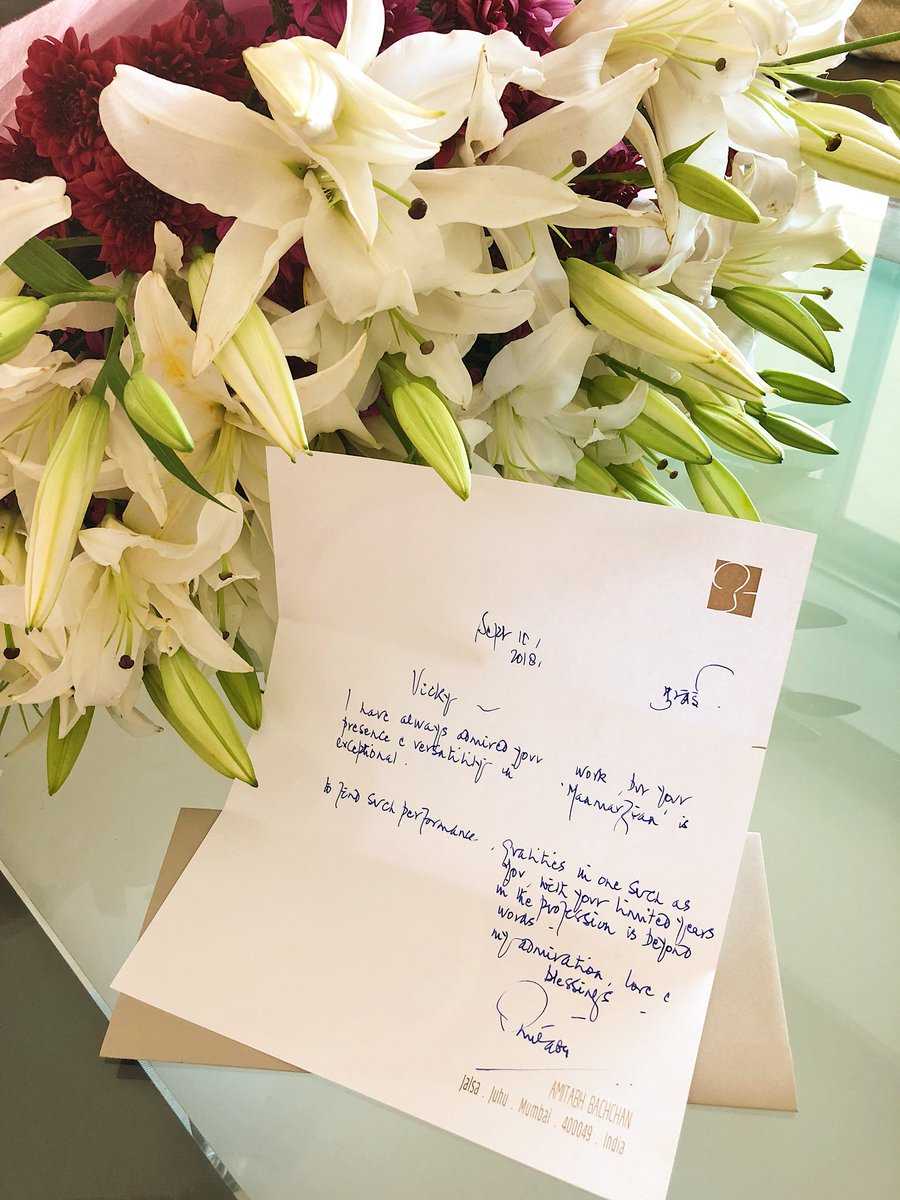 Sept
2018,
मुम्बई .
Vicky ~
I have always admired your work, but your
presence & versatility in 'Manmarzian' is
exceptional.
to find such performance, qualities in one such as
you, with your limited years
in the profession is beyond
words -
my admiration, love &
blessings -
AMITABH BACHCHAN
Jalsa . Juhu . Mumbai . 400049 . India